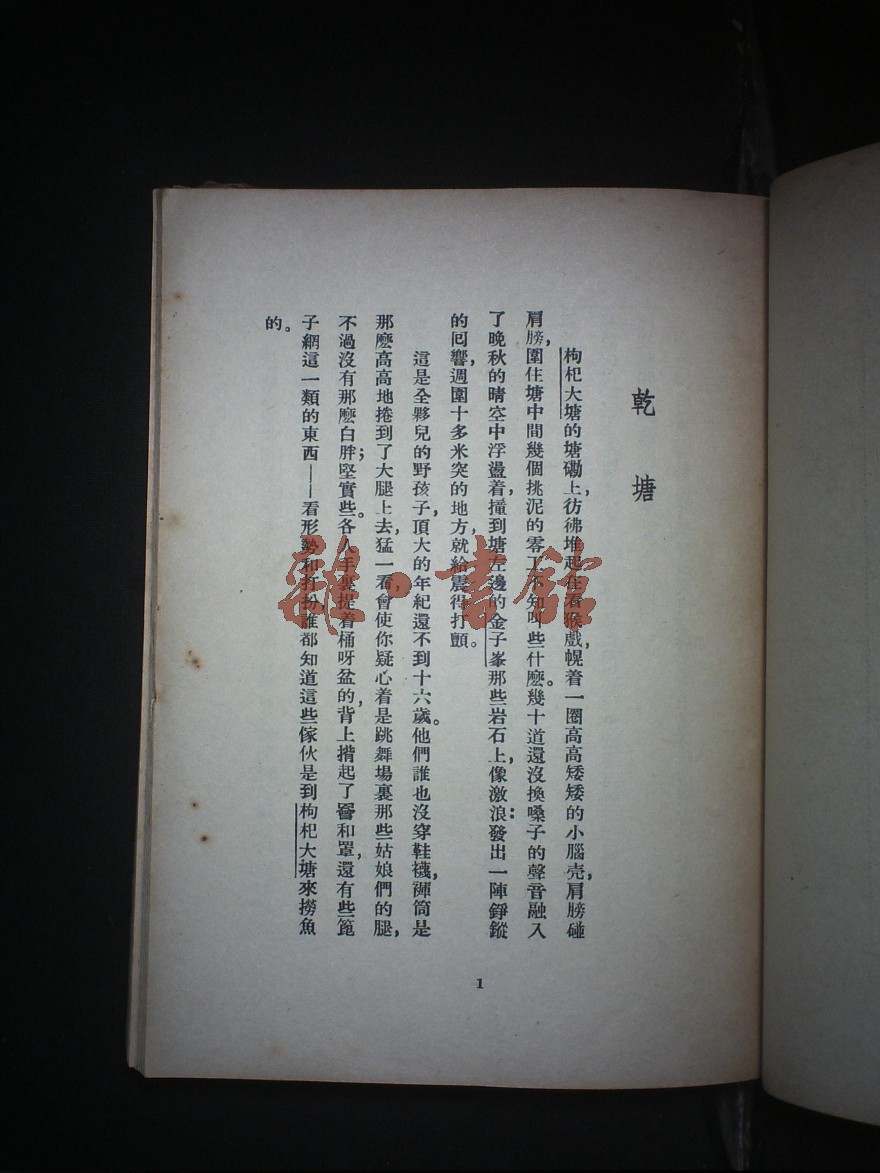 乾塘
枸杞大塘的塘磡上，彷彿堆起在看猴戲，幌着一圈高高矮矮的小腦壳，肩膀碰
肩膀，圍住塘中間幾個挑泥的零工不知叫些什麽。幾十道還沒換嗓子的聲音融入
了晚秋的晴空中浮盪着，撞到塘左邊的金子峯那些岩石上，像激浪發出一陣錚鏦
的囘響，週圍十多米突的地方就給震得打顫。
這是全夥兒的野孩子，頂大的年紀還不到十六歲。他們誰也沒穿鞋襪，褲筒是
那麽高高地捲到了大腿上去，猛一看會使你疑心着是跳舞場裏那些姑娘們的腿，
不過沒有那麽白胖；堅實些。各人手裏提着桶呀盆的，背上揹起了罾和罩，還有些篼
子網這一類的東西——看形勢和打扮誰都知道這些傢伙是到枸杞大塘來撈魚
的。
1
雜·書館